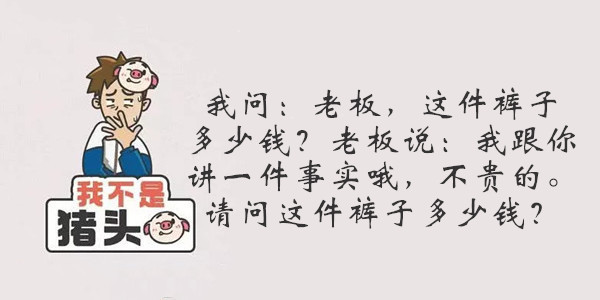 我问：老板，这件裤子
多少钱？老板说：我跟你
讲一件事实哦，不贵的。
请问这件裤子多少钱？
我不是
猪头